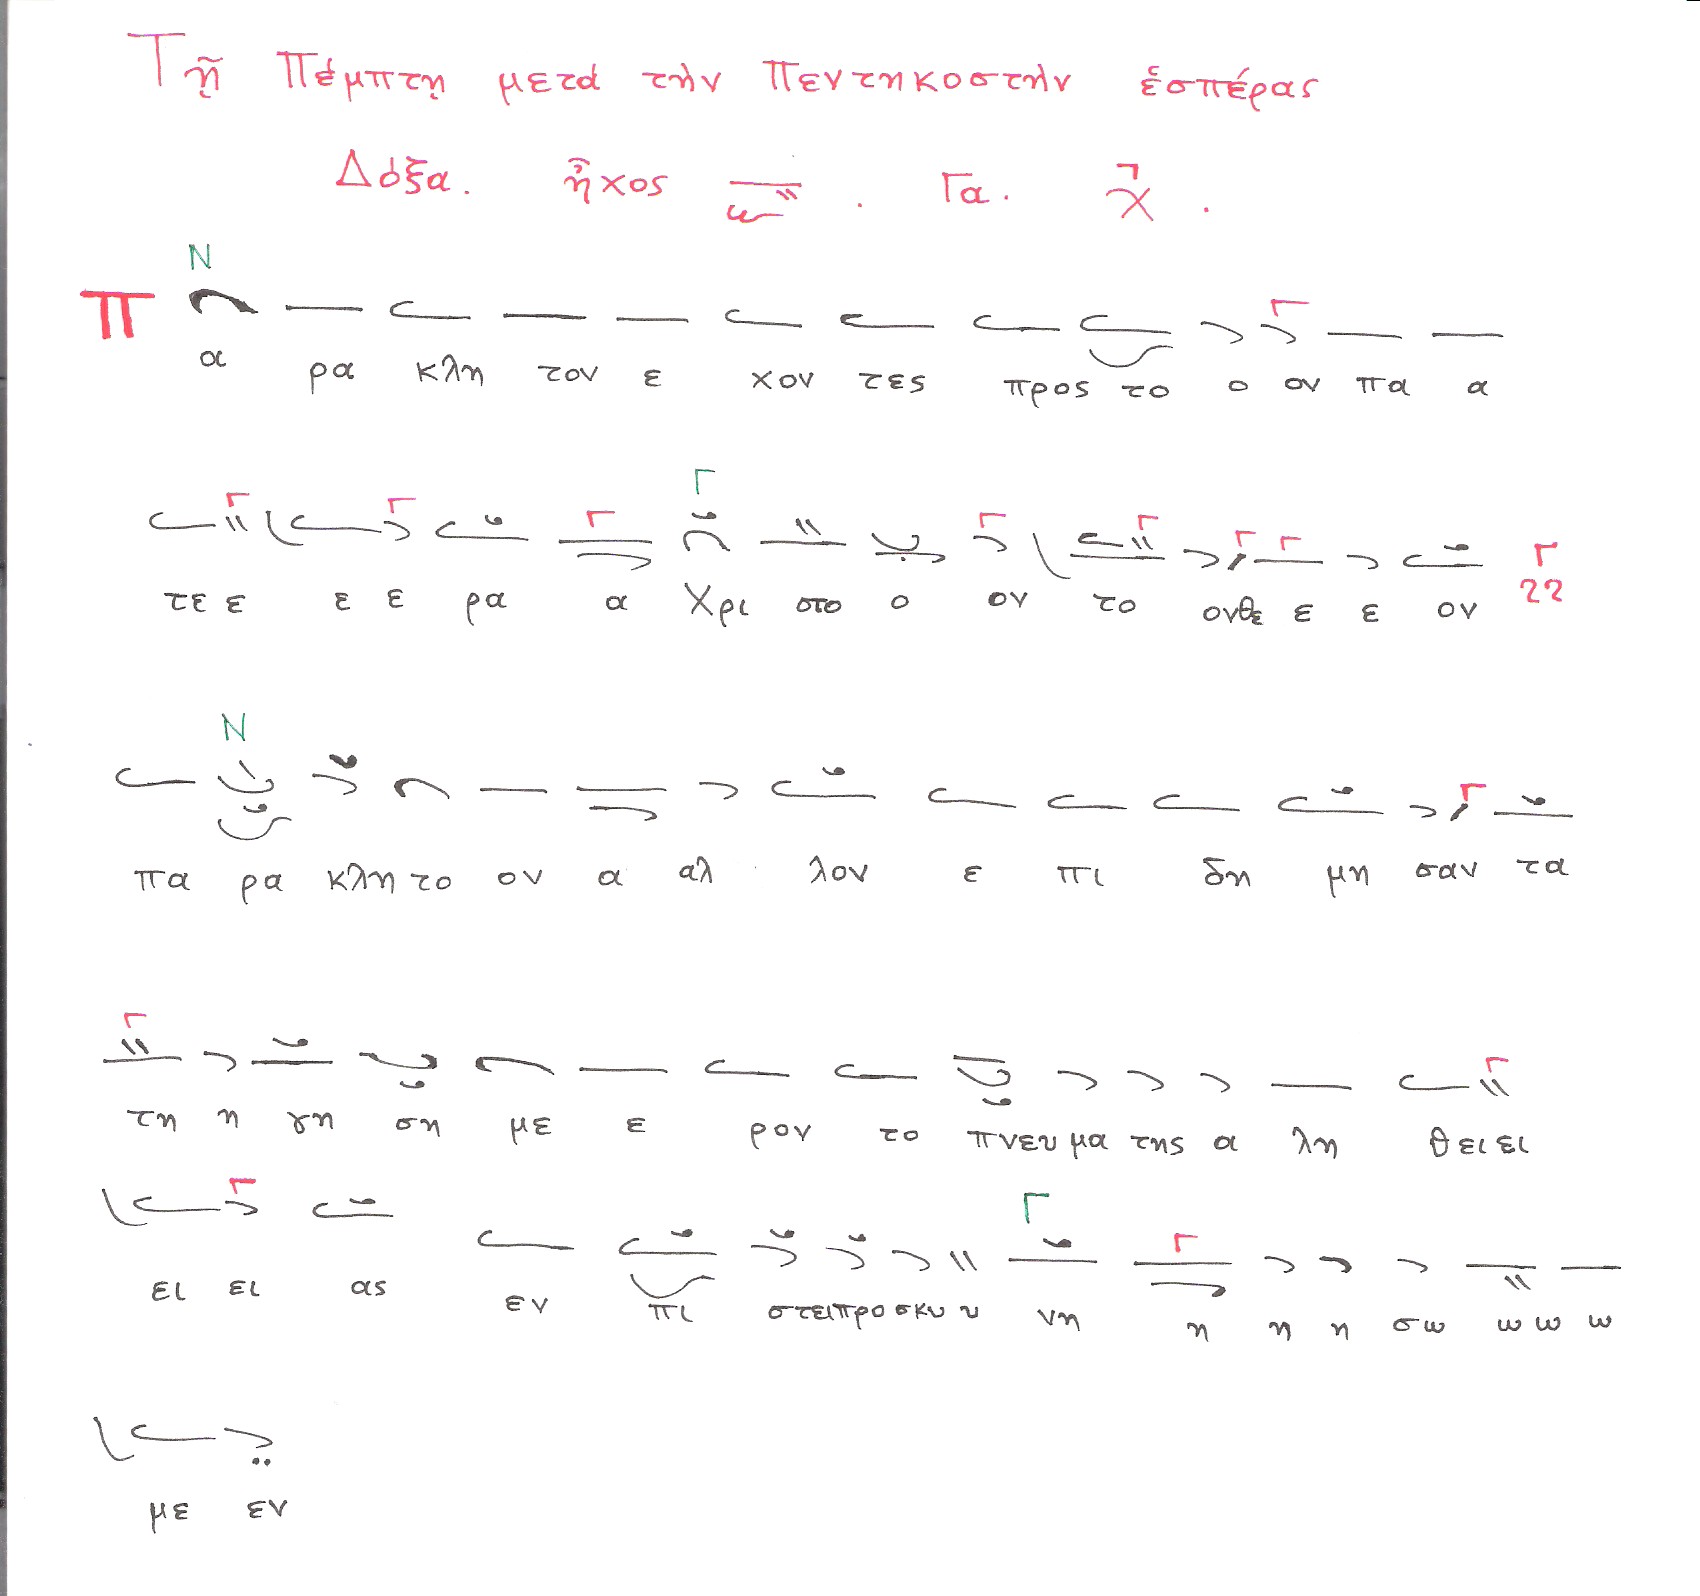 Τῇ Πέμπτῃ μετὰ τὴν Πεντηκοστὴν ἑσπέρας
Δόξα. ἦχος . Γα.
Ν
Π α ρα κλη τον ε χον τες προς το ο ον πα α
Γ
τε ε ε ε ρα α Χρι στο ο ον το ονθε ε ε ον
Ν
πα ρα κλη το ον α αλ λον ε πι δη μη σαν τα
τη η γη ση με ε ρον το πνευ μα της α λη θει ει
Γ
ει ει ας εν πι στει προ σκυ υ νη η η η σω ω ω ω
με εν